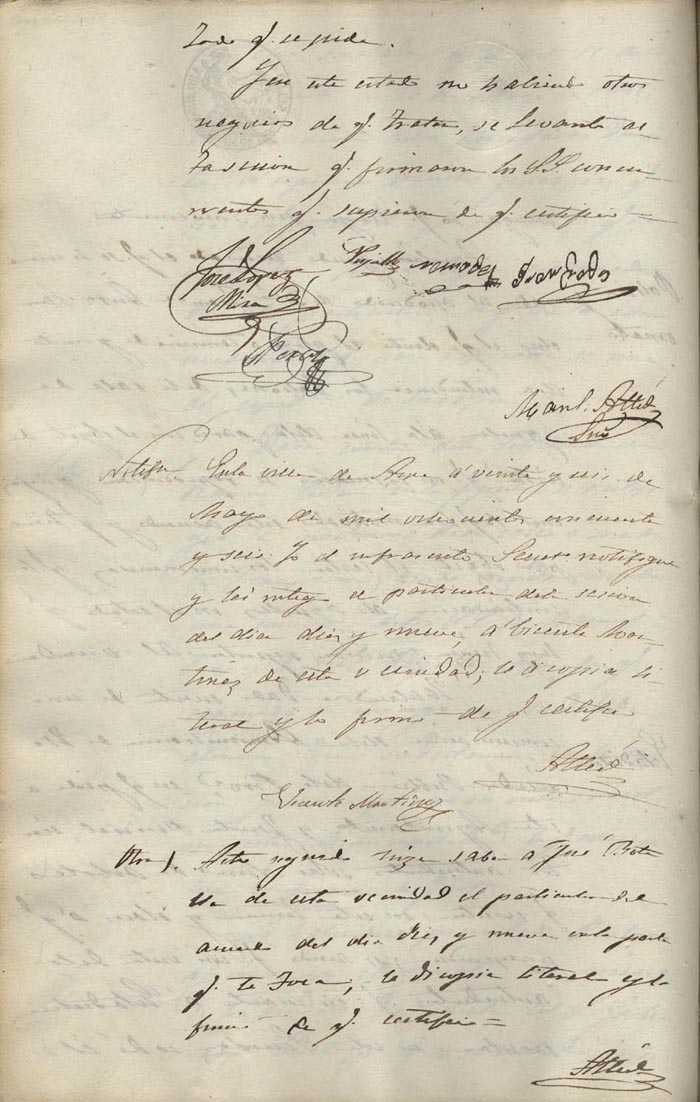 q.e se pide.
Y en este estado no habiendo otros
negocios de q.e tratar, se levantó
la sesion q.e firmaron los SS. concur-
rentes q.e supieron de q.e certifico =
José Lopez
Mira
Juan
Man.l
Srio
En la villa de á veinte y seis de
Mayo de mil ochocientos cincuenta
y seis: Yo el infrascrito Secret.o notifiqué
y leí integ.o el particular de la sesion
del dia diez y nueve, á Vicente Mar-
tinez de esta vecindad; le di copia li-
teral y lo firmó de q.e certifico
Vicente Martinez
Otra). Acto seguido hize saber a José
de esta vecindad el particular del
acuerdo del dia diez y nueve en la parte
q.e le toca; le di copia literal y lo
firmó de q.e certifico =